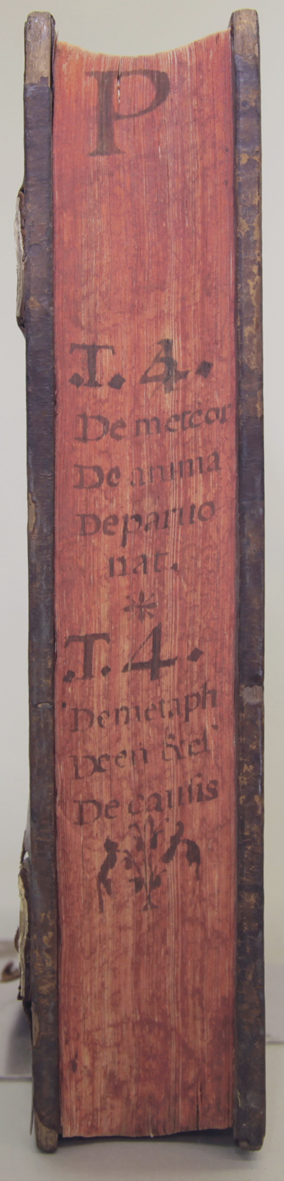 P
.T. 4.
De meteor
De anima
De paruo
nat.
*
.T. 4.
De metaph
De en &
De causis